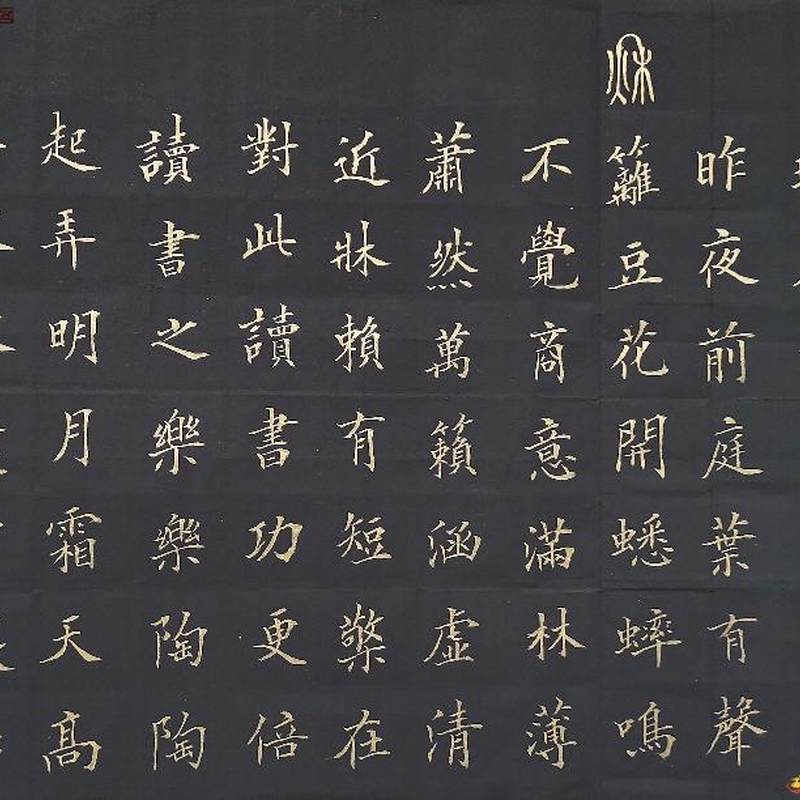 昨夜前庭葉有聲
秌
籬豆花開蟋蟀鳴
不覺商意滿林薄
蕭然萬籟涵虛清
近牀賴有短檠在
對此讀書功更倍
讀書之樂樂陶陶
起弄明月霜天高